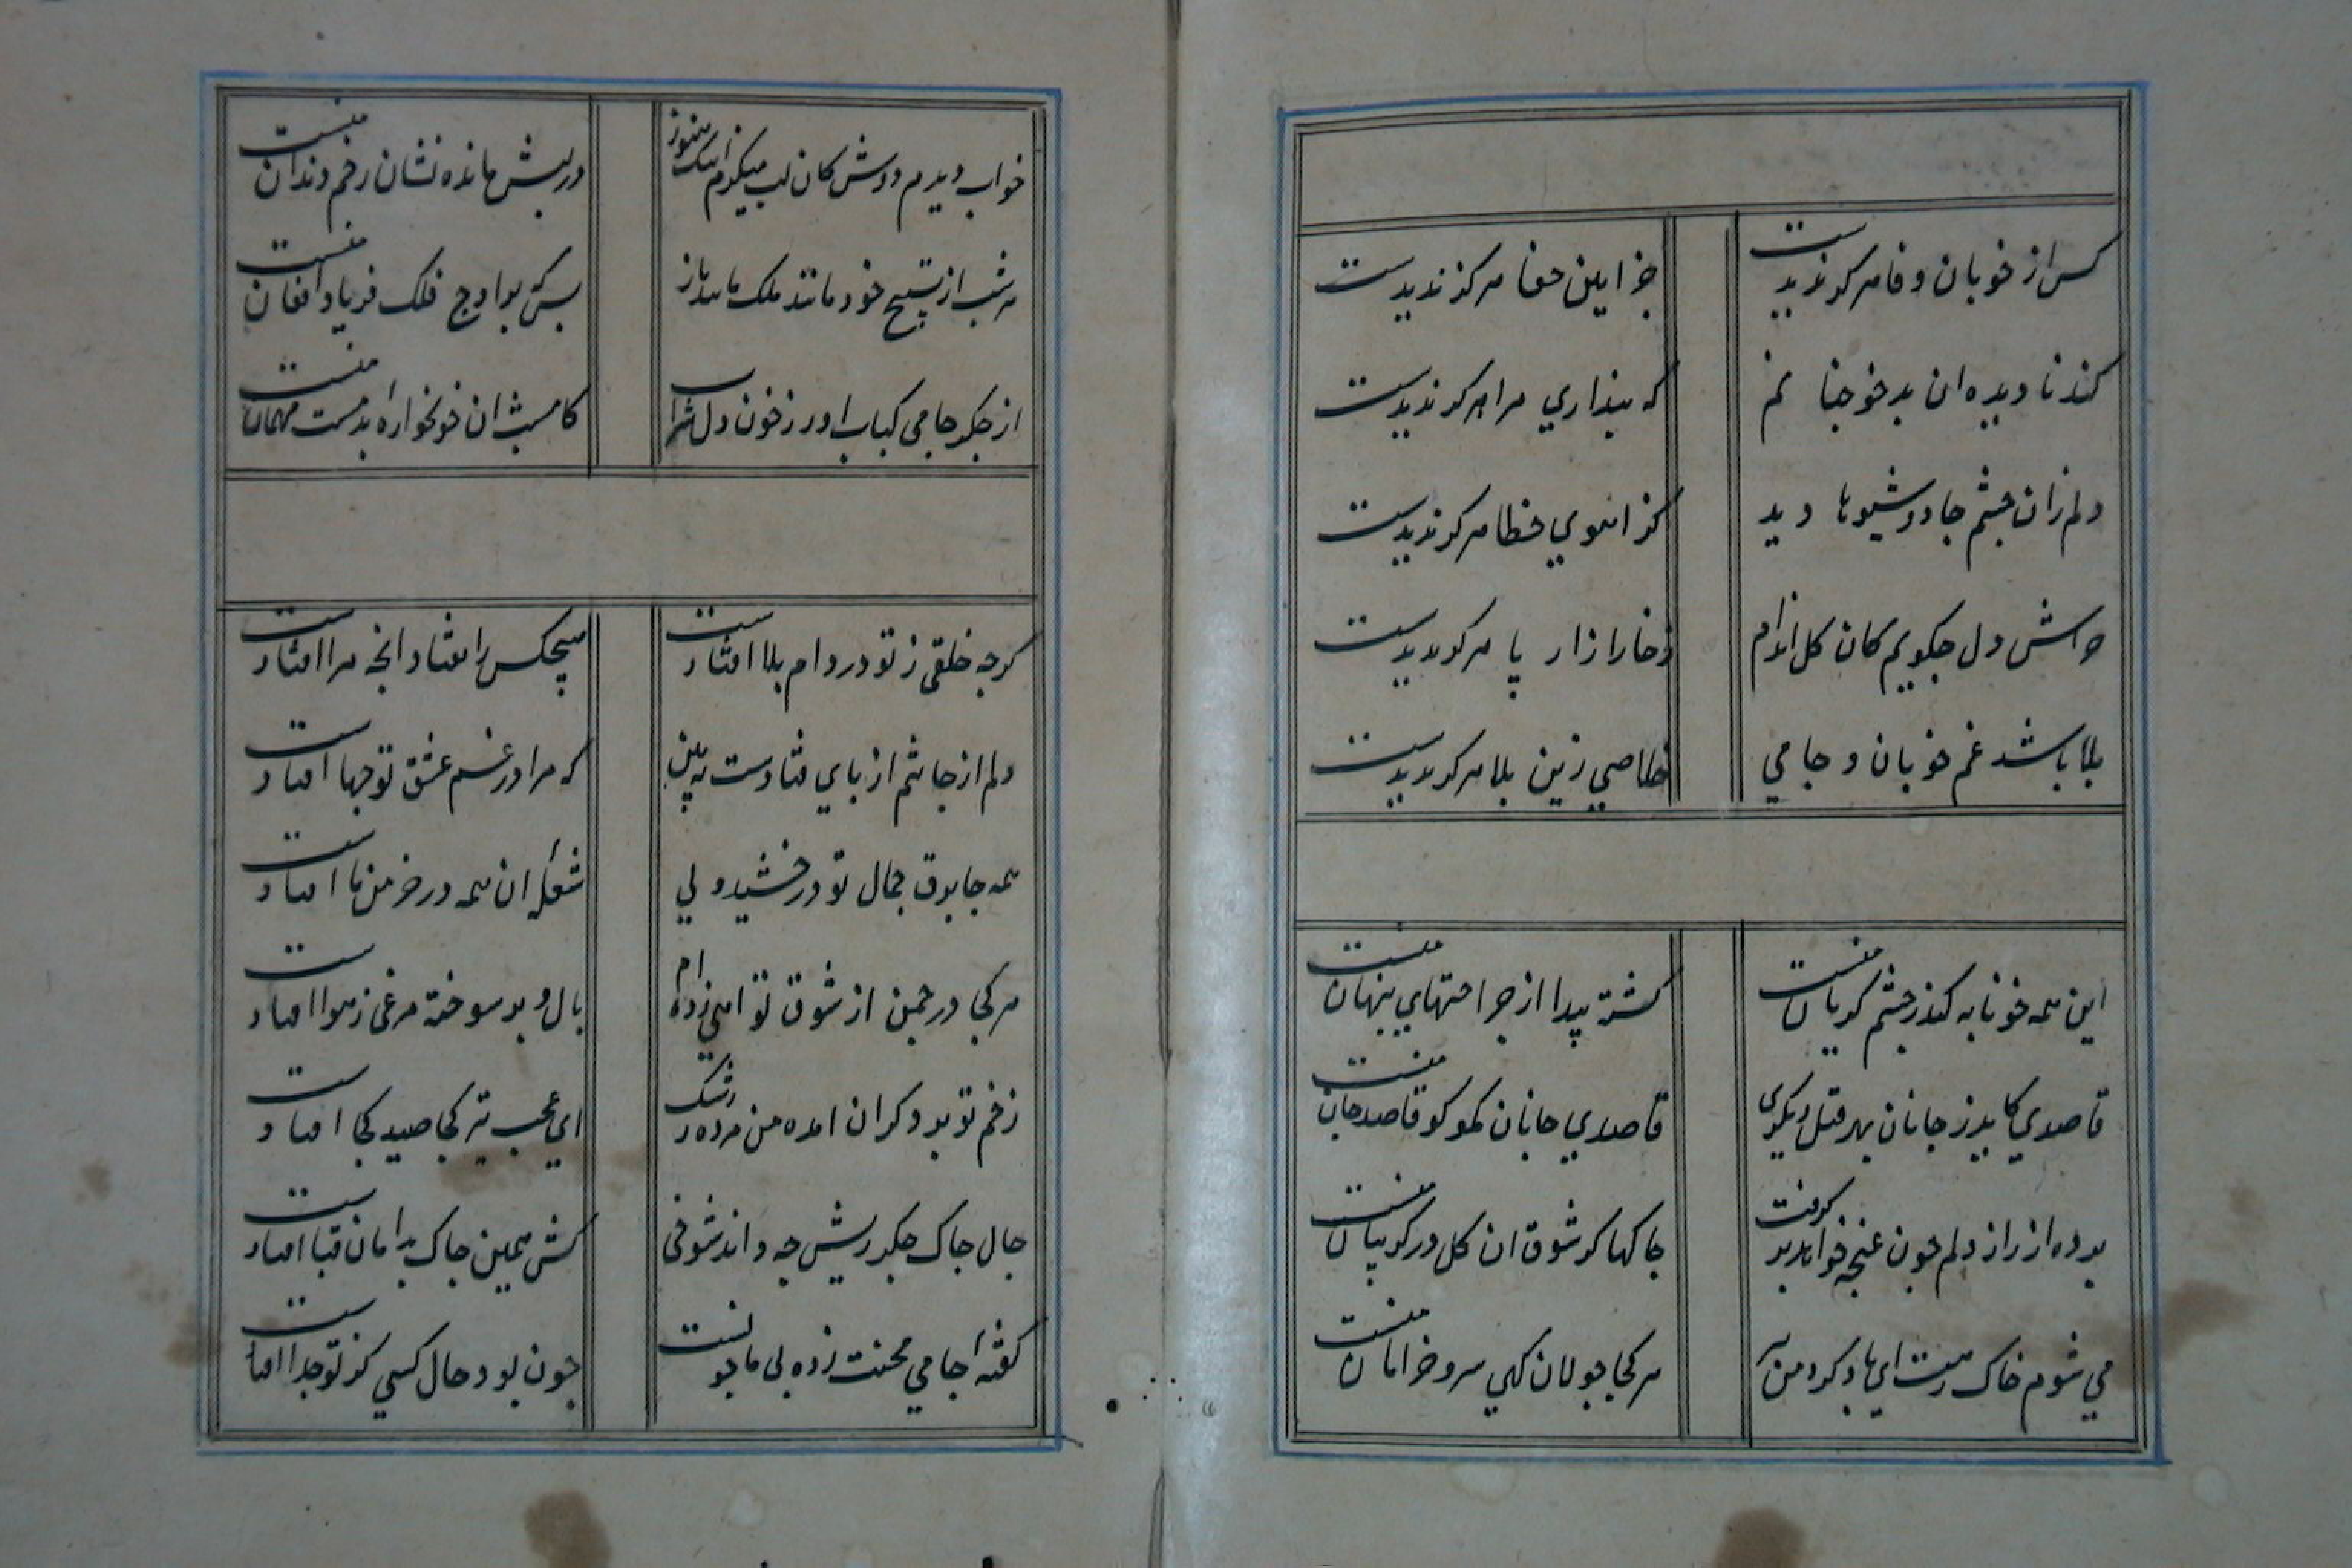 کس از خوبان وفا هرکز ندیدست
جز ایین جفا هرکز ندیدست
کند نا دیده ان بدخو جنا نم
که پنداری مرا هرکز ندیدست
دلم زان چشم جادو شیوها دید
کز اهوی خطا هرکز ندیدست
خراش دل چکویم کان کل اندام
زخار ازار پا هرکز ندیدست
بلا باشد غم خوبان و جامی
خلاصی زین بلا هرکز ندیدست
این همه خونابه کندر چشم کریان منست
کشته پیدا از جراحتهای پنهان منست
قاصدی کاید ز جانان بهر قتل دیکری
قاصدی جانان مکو کو قاصد جان منست
پرده از راز دلم چون غنچه خواهد بر کرفت
چاکها کز شوق ان کل در کریبان منست
می شوم خاک رهت ای باد کرد من
هر کجا جولان کهی سرو خرامان منست
خواب دیدم دوش کان لب میکزم اینک هنوز
در لبش مانده نشان زخم دندان منست
هر شب از تسبیح خود مانند ملک ماند باز
بس که بر اوج فلک فریاد افغان منست
از جکر جامی کباب اور ز خون دل شراب
کامشب ان خونخواره بد مست مهمان منست
کرچه خلقی ز تو در دام بلا افتادست
هیچکس را نفتاد انچه مرا افتادست
دلم از جا شم از پای فتادست ببین
که مرا در غم عشق تو چها افتادست
همه جا برق جمال تو درخشید ولی
شعله ان همه در خرمن ما افتادست
هر کجا در چمن از شوق تو اهی زده ام
بال و پر سوخته مرغی ز هوا افتادست
زخم تو بر دکران امده من مرده ز رشک
ای عجب تیر کجا صید کجا افتادست
حال چاک جکر ریش چه داند شوخی
کش همین چاک بدامان قبا افتادست
کفته جامی محنت زده بی ما چونست
چون بود حال کسی کز تو جدا افتادست